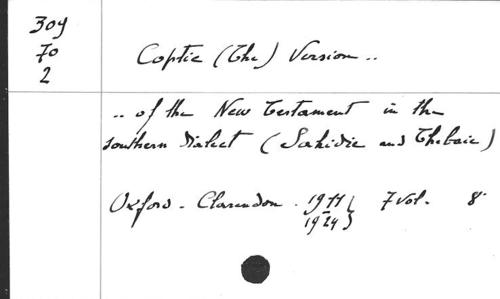 309
70
2
Coptic (The) Version ..
.. of the New Testament in the
southern dialect (Sahidic and Thebaic)
Oxford - Clarendon . 1911 } 7 vol. 8°
1924 }